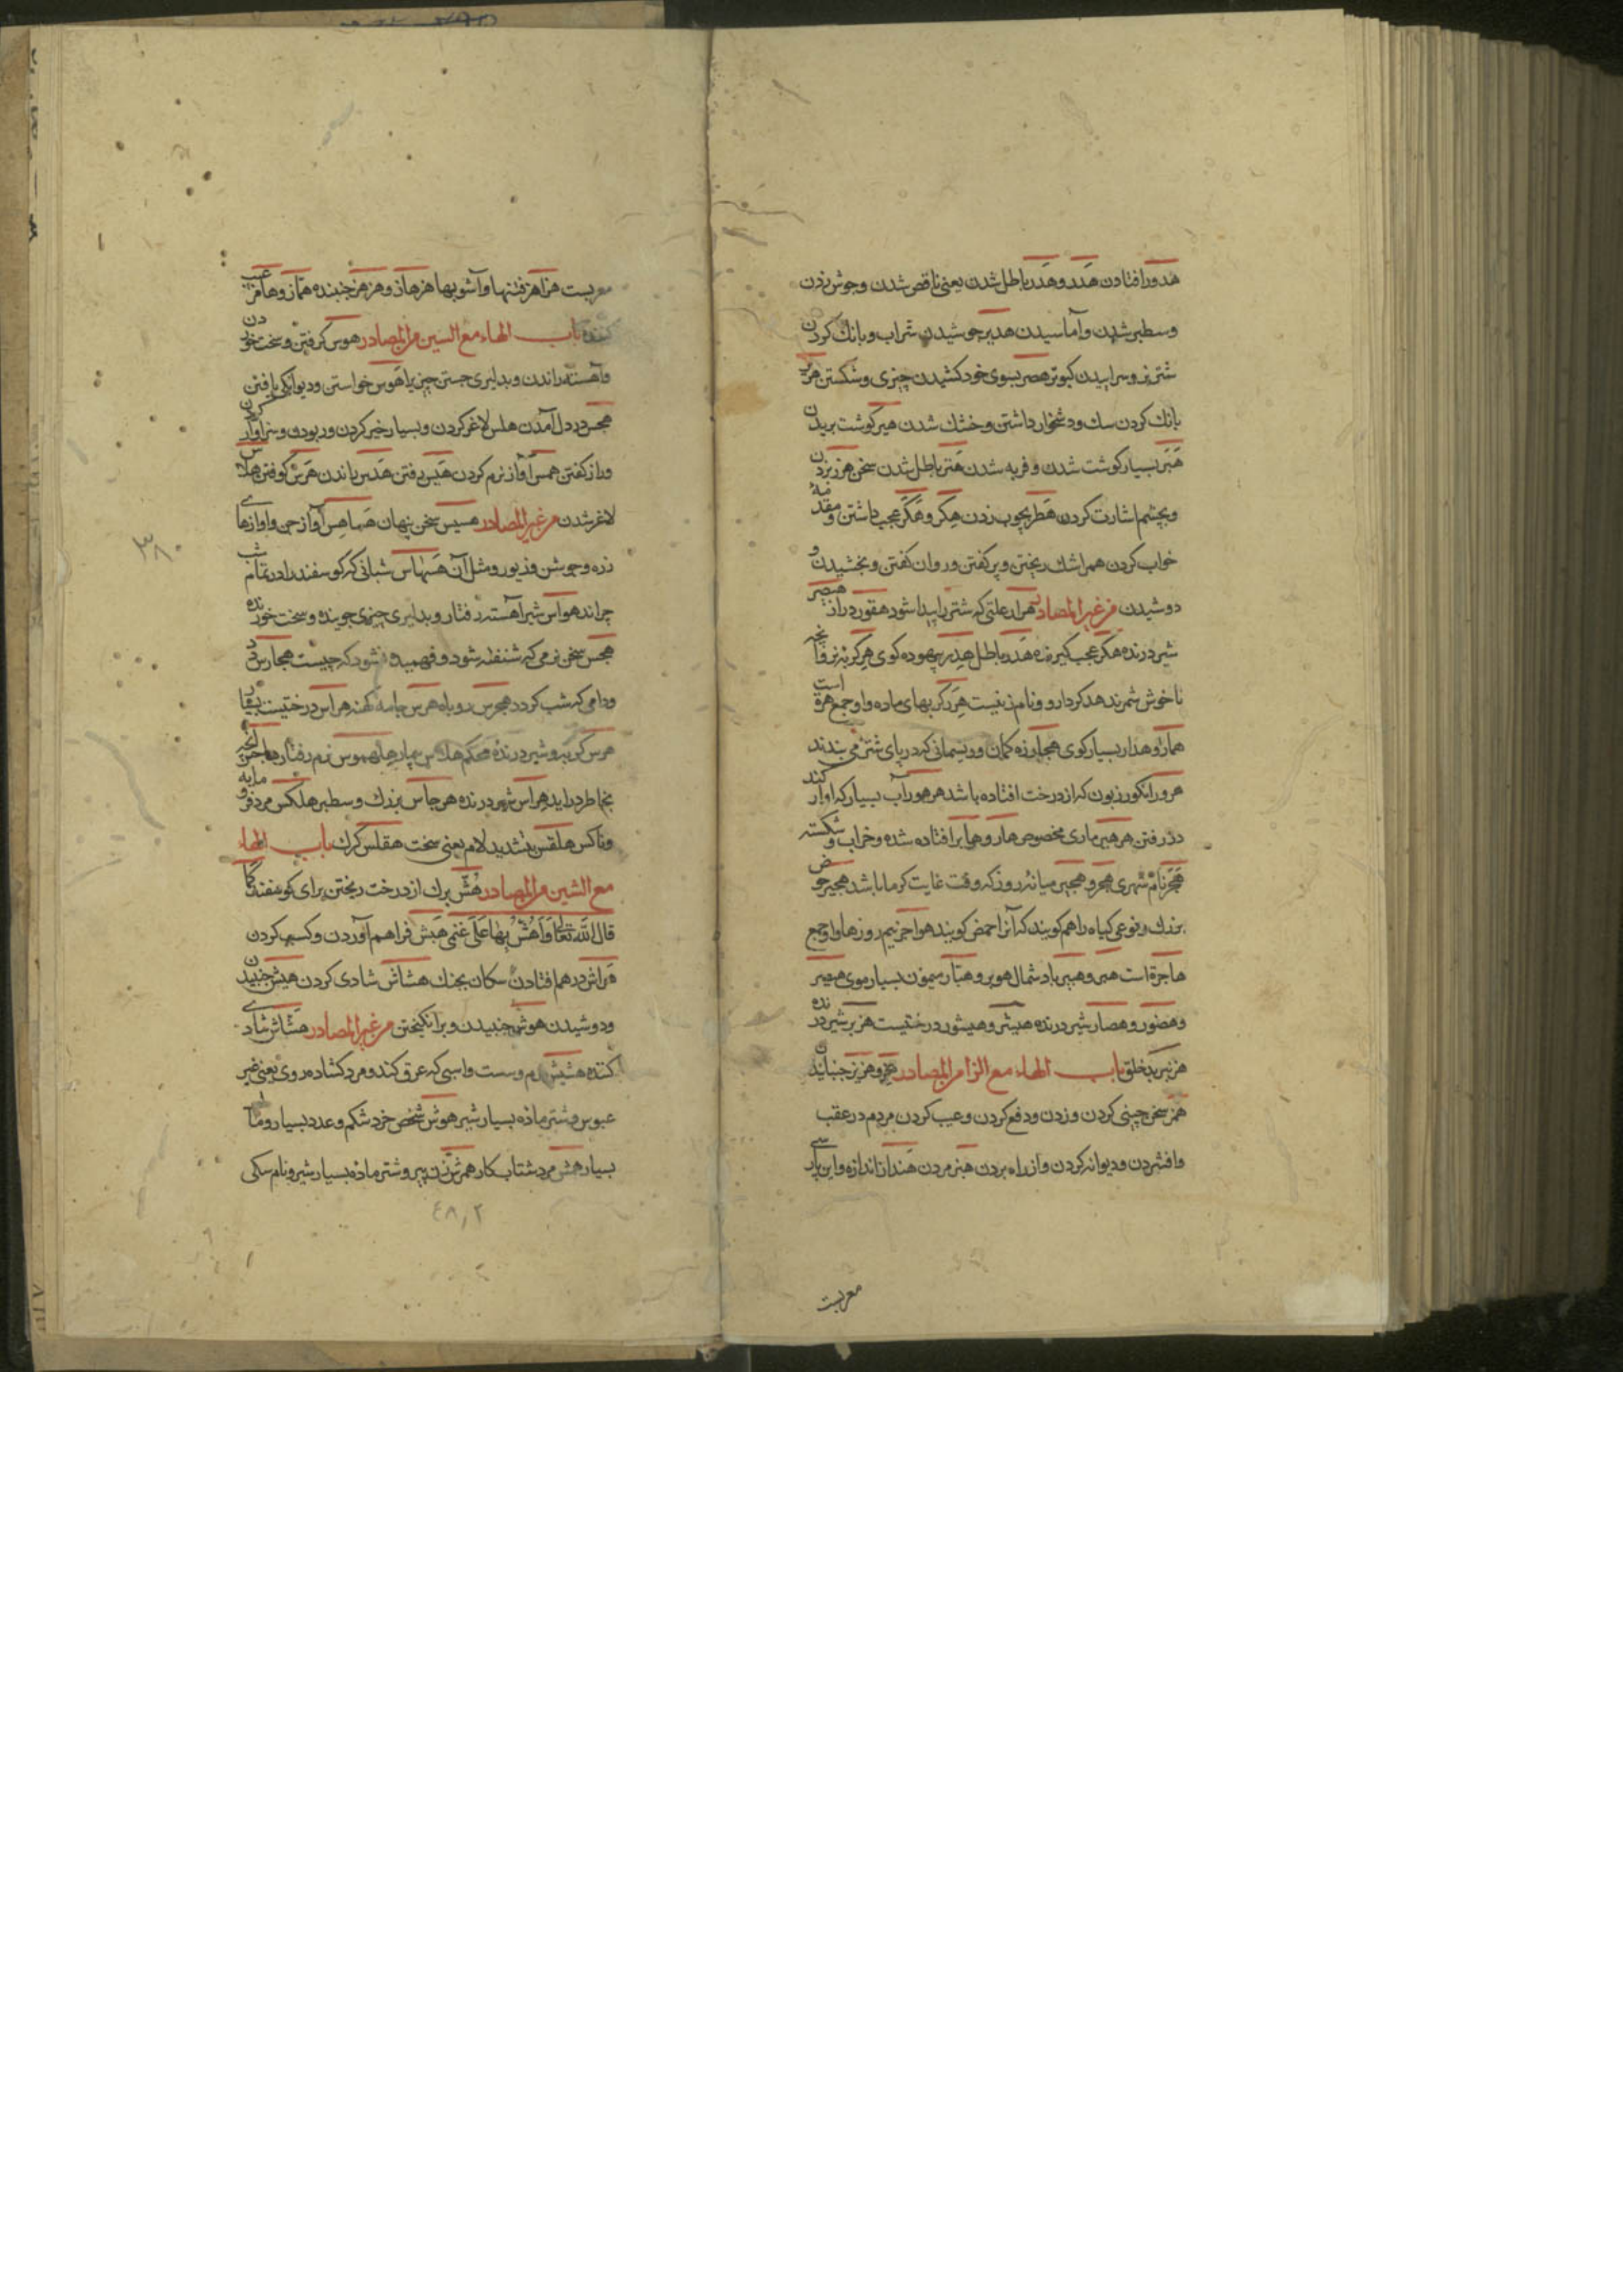 هدور افتادن هَدر و هَدر باطل شدن یعنی ناقص شدن و جوش زدن
و سطبر شدن و آماسیدن هدیر جوشیدن شراب و بانك كردن
شتر نر و سراییدن كبوتر هصر بسوی خود كشیدن چیزی و شكستن هریر
بانك كردن سك و دشخوار داشتن و خشك شدن هبر كوشت بریدن
هَبَر بسیار كوشت شدن و فربه شدن هَتر باطل شدن سخن هزر بزدن
و بچشم اشارت كردن هَطر بچوب زدن هكر و هَكَر عجب داشتن و مقدمهٔ
خواب كردن همر اشك ریختن و پر كفتن و روان كفتن و بخشیدن و
دوشیدن من غیر المصادر هرار علتی كه شتر را پیدا شود هقور دراز هیصر
شیر درنده هكر عجب كیرنده هَدر باطل هِدر بیهوده كوی هِر كربه نر و آنچه
ناخوش شمرند هد كردار و و نام زنیست هِرَر كربهای ماده و او جمع هرة است
همار و هذار بسیار كوی هجار زه كمان و ریسمانی كه در پای شتر می بندند
هرور انكور زبون كه از درخت افتاده باشد هرهور آب بسیار كه آواز كند
در رفتن هرهیر ماری مخصوص هار و هایر افتاده شده و خراب و شكسته
هَجَر نام شهری هجر و هجیر میانهٔ روز كه وقت غایت كرما باشد هجیر حوض
بزرك و نوعی كیاه را هم كویند كه آنرا حمض كویند هواجر نیم روزها و او جمع
هاجرة است هیر و هییر باد شمال هوبر و هبار میمون بسیار موی هیصر
و هصور و هصار شیر درنده هیشر و هیشور درختیست هزبر شیر درنده
هزنبر بد خلق باب الهاء مع الزا من المصادر هز و هزیز جنبانیدن
همز سخن چینی كردن و زدن و دفع كردن و عیب كردن مردم در عقب
و افشردن و دیوانه كردن و از راه بردن هبز مردن هَنداز اندازه و این پارسی
معربست
معربست هزاهز فتنها و آشوبها هزهاز و هزهز جنبنده هماز و هامز عیب
كننده باب الهاء مع السین من المصادر هوس كرفتن و سخت خوردن
و آهسته راندن و بدلیری جستن چیزیرا هَوس خواستن و دیوانكی یافتن
هجس در دل آمدن هلس لاغر كردن و بسیار خیر كردن و ربودن و سزاوار كردن
و راز كفتن همس آواز نرم كردن هَبس رفتن هَدس راندن هَرس كوفتن هلاس
لاغر شدن من غیر المصادر هسیس سخن پنهان هَماهِس آواز جن و آوازهای
زره و جوشن و زیور و مثل آن هَسهاس شبانی كه كوسفند را در تمام شب
چراند هواس شیر آهسته رفتار و بدلیری چیزی جوینده و سخت خورنده
هجس سخن نرمی كه شنفته شود و فهمیده نشود كه چیست هجارس دد
و دامی كه شب كردد هجرس روباه هرس جامه كهنه هراس درختیست
هرس كربه و شیر درنده محكم هلاس بیماری هموس نرم رفتار هاجس آنچه
بخاطر درآید هِراس شیر درنده هرجاس بزرك و سطبر هلكس مرد فرومایه
و ناكس هلقس بتشدید لام یعنی سخت هقلس كرك باب الهاء
مع الشین من المصادر هُش برك از درخت ریختن برای كوسفند كما
قال الله تعالی وَاَهُشُّ بِهَا عَلَى غَنَمِي هَبش فراهم آوردن و كسب كردن
هَراش در هم افتادن سكان بجنك هشاش شادی كردن هیش جنبیدن
و دوشیدن هوش جنبیدن و برانكیختن من غیر المصادر هشاش شادی
كننده هشیش نرم و سست و اسبی كه عرق كند و مرد كشاده روی یعنی غیر
عبوس و شتر ماده بسیار شیر هوش شخص خرد شكم و عدد بسیار و مال
بسیار هش مرد شتاب كار همرش زن پیر و شتر ماده بسیار شیر و نام سكی
٣٨٠
٤٨٫٢